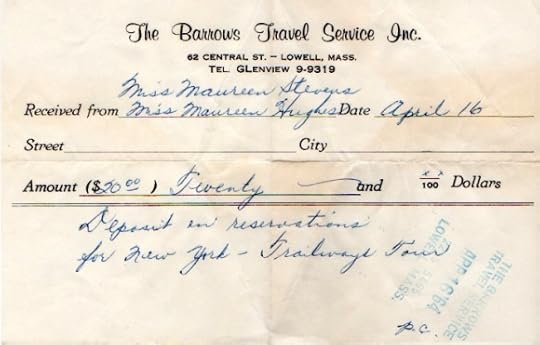 The Barrows Travel Service Inc.
62 CENTRAL ST. – LOWELL, MASS.
TEL. GLENVIEW 9-9319
Miss Maureen Stevens
Received from Miss Maureen Hughes Date April 16
Street City
Amount ($20 00 ) Twenty and x x/100 Dollars
Deposit on reservations
for New York – Trailways Tour
THE BARROWS
TRAVEL SERVICE
APR 16 '64
LOWELL, MASS.
p.c.